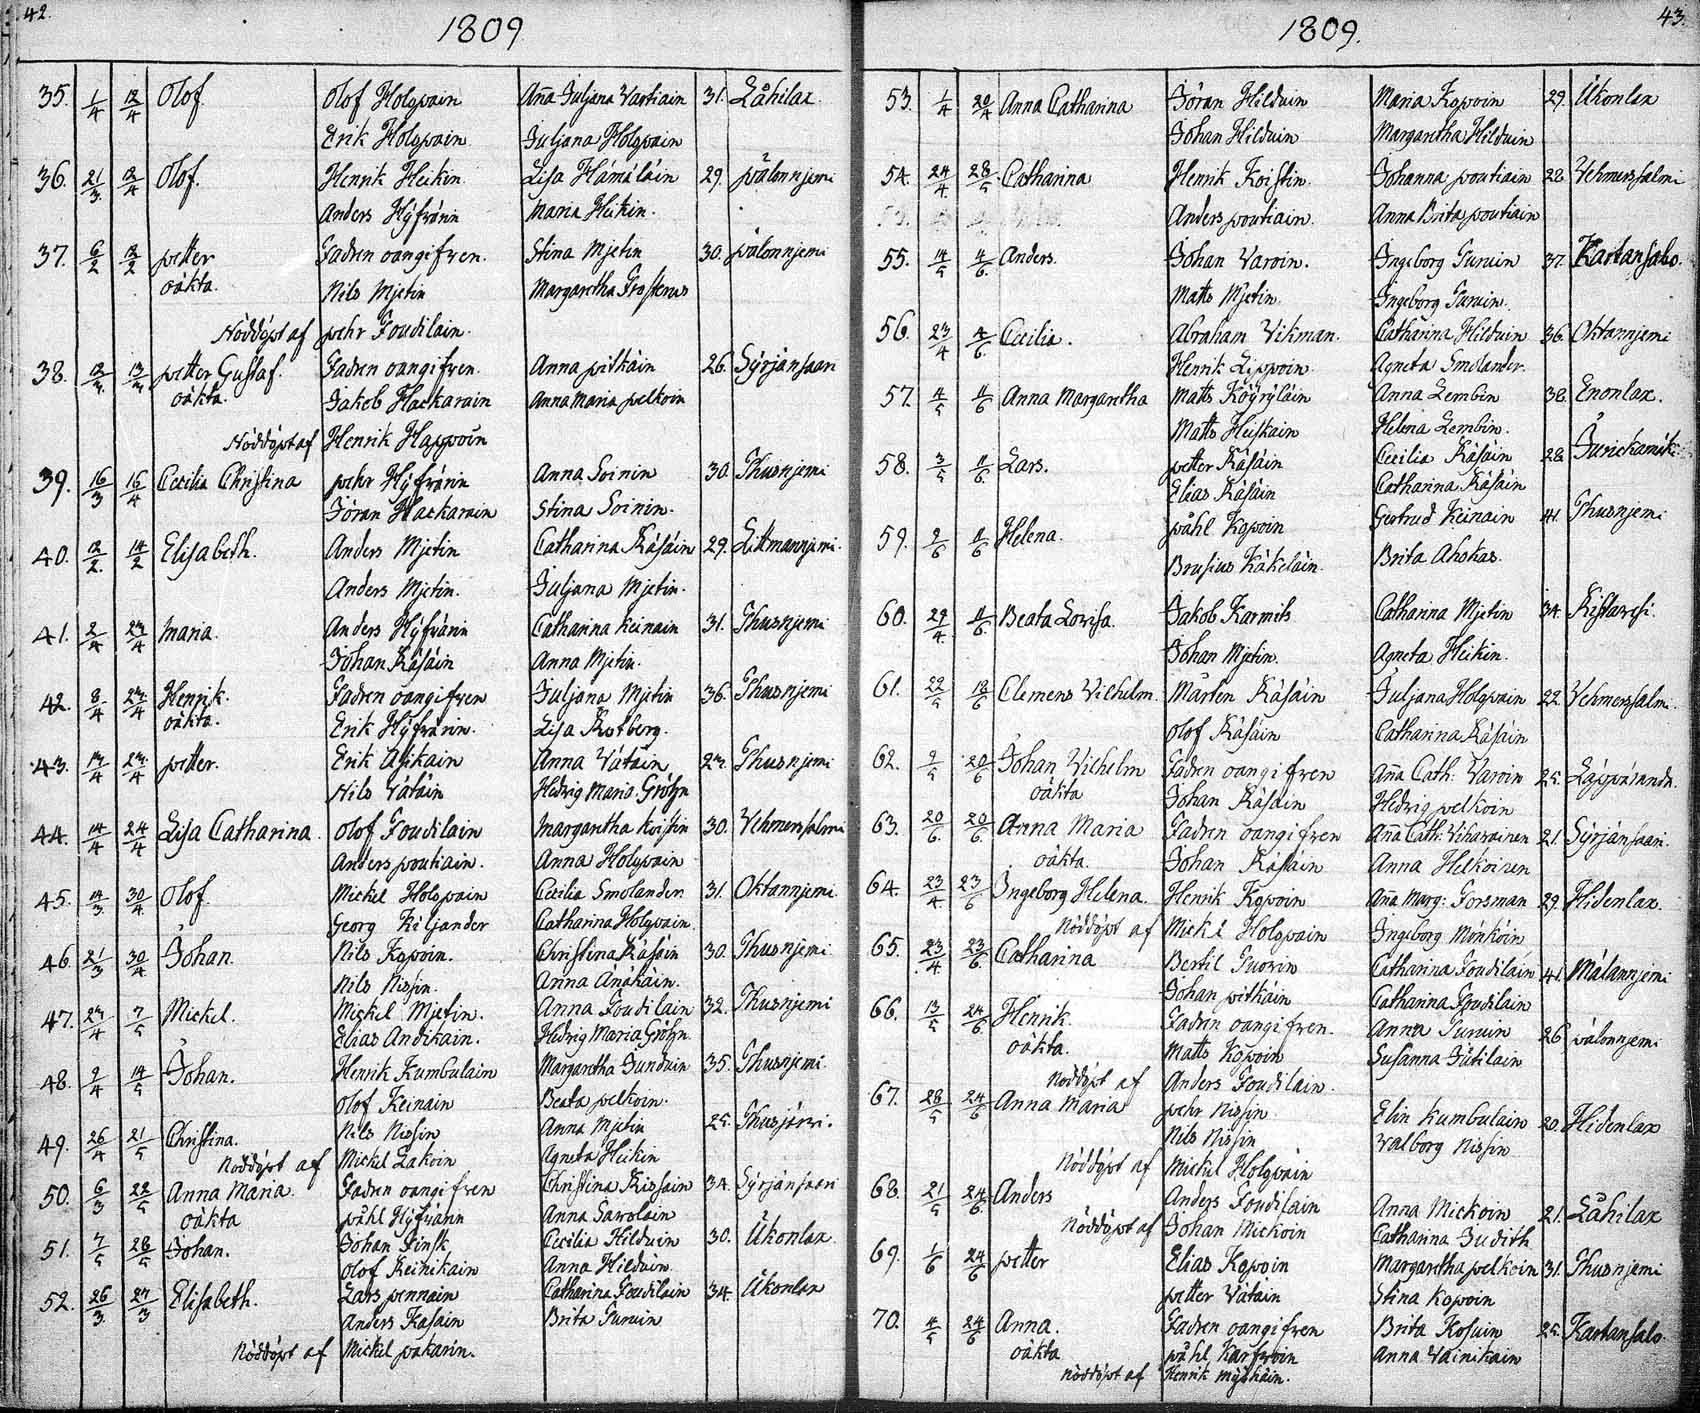 42.
1809
35. 1/4 12/4 Olof. Olof Holopain Anna Juljana Vartiain 31. Låhilax
Erik Holopain Juljana Holopain
36. 21/3 12/4 Olof. Henrik Heikin Lisa Hämäläin 29. pålonnjemi
Anders Hyfvärin Maria Heikin.
37. 6/2 12/2 petter Fadren oangifven. Stina Mjetin 30. pålonnjemi
oäkta. Nils Mjetin Margaretha Frosterus
Nöddöpt af pehr Foudilain.
38. petter Gustaf. Fadren oangifven. Anna pitkäin 26. Syrjänsaari
oäkta. Jakob Hackarain Anna Maria pelkoin
Nöddöpt af Henrik Happoin
39. 16/3 16/4 Cecilia Christina pehr Hyfvärin Anna Soinin 30. Thusnjemi
Jöran Hackarain Stina Soinin.
40. 12/2 14/2 Elisabeth. Anders Mjetin Catharina Räsäin 29. Littmannjemi.
Anders Mjetin. Juljana Mjetin.
41. 2/4 23/4 Maria. Anders Hyfvärin Catharina Keinain 31. Thusnjemi
Johan Räsäin Anna Mjetin.
42. 8/4 23/4 Henrik. Fadren oangifven Juljana Mjetin 36. Thusnjemi
oäkta. Erik Hyfvärin. Lisa Rotberg.
43. 13/4 23/4 petter. Erik Asikain Anna Vätäin 23. Thusnjemi
Nils Vätäin Hedvig Maria Gröhn
44. 14/4 24/4 Lisa Catharina. Olof Foudilain Margaretha Koistin 30. Vehmersalmi
Anders poutiain. Anna Holopain
45. 14/3 30/4 Olof. Mickel Holopain Cecilia Smolander 31. Oktannjemi
Georg Kiljander Catharina Holopain
46. 21/3 30/4 Johan. Nils Kopoin. Christina Räsäin 30. Thusnjemi
Nils Nissin. Anna Änäkäin.
47. 23/4 7/5 Mickel. Mickel Mjetin. Anna Foudilain 32. Thusnjemi
Elias Andikain. Hedvig Maria Gröhn
48. 9/4 14/5 Johan. Henrik Kumbulain Margaretha Sunduin 35. Thusnjemi.
Olof Keinain Beata pelkoin.
49. 26/4 21/5 Christina. Nils Nissin Anna Mjetin 25. Thusjärvi.
Nöddöpt af Mickel Lakoin Agneta Heikin
50. 6/3 22/5 Anna Maria. Fadren oangifven Christina Kissain 34. Syrjänsaari
oäkta påhl Hyfvärin Anna Savolain
51. 7/5 28/5 Johan. Johan Finsk Cecilia Hilduin 30. Ukonlax
Olof Reinikain Anna Hilduin.
52. 26/3 27/3 Elisabeth. Lars pennain Catharina Foudilain 34. Ukonlax
Anders Kasain Brita Turuin
Nöddöpt af Mickel pakarin.
43.
1809.
53. 1/4 20/4 Anna Catharina Jöran Hilduin Maria Kopoin 29. Ukonlax
Johan Hilduin Margaretha Hilduin
54. 24/4 28/5 Catharina Henrik Koistin. Johanna poutiain 22. Vehmersalmi
Anders poutiain. Anna Brita poutiain
55. 14/5 4/6 Anders. Johan Varoin. Ingeborg Turuin 37. Kartansalo.
Matts Mjetin. Ingeborg Turuin.
56. 23/4 4/6 Cecilia. Abraham Vikman. Catharina Hilduin 36. Oktannjemi
Henrik Lippoin. Agneta Smolander.
57. 4/5 11/6 Anna Margaretha Matts Köyryläin Anna Lembin 38. Enonlax.
Matts Heiskain Helena Lembin.
58. 3/5 11/6 Lars. petter Räsäin Cecilia Räsäin 28. Jurickamäki
Elias Räsäin Catharina Räsäin
59. 9/6 11/6 Helena. påhl Kopoin Gertrud Keinain 41. Thusnjemi
Brusius Käkeläin. Brita Ahokas.
60. 29/4 11/6 Beata Lovisa. Jakob Karmits Catharina Mjetin 34. Ristavesi.
Johan Mjetin. Agneta Heikin.
61. 22/5 18/6 Clemens Vilhelm. Mårten Räsäin Juljana Holopain 22. Vehmersalmi.
Olof Räsäin Catharina Räsäin
62. 9/5 20/6 Johan Vilhelm Fadren oangifven Anna Cath: Varoin 25. Läppäranda.
oäkta Johan Räsäin Hedvig pelkoin
63. 20/6 20/6 Anna Maria Fadren oangifven Anna Cath: Viharainen 21. Syrjänsaari.
oäkta. Johan Räsäin Anna Helkoinen
64. 23/4 23/6 Ingeborg Helena. Henrik Kopoin Anna Marg: Forsman 29. Hidenlax.
Nöddöpt af Mickel Holopain Ingeborg Mönköin
65. 23/4 23/6 Catharina Bertil Tuorin Catharina Foudilain 41. Målannjemi
Johan pitkäin Catharina Foudilain
66. 13/5 24/6 Henrik. Fadren oangifven. Anna Turuin 26 pålonnjemi
oäkta. Matts Kopoin Susanna Jutilain
Nöddöpt af Anders Foudilain.
67. 28/5 24/6 Anna Maria pehr Nissin. Elin Kumbulain 20. Hidenlax
Nils Nissin Valborg Nissin
Nöddöpt af Mickel Holopain
68. 21/5 24/6 Anders Anders Foudilain Anna Mickoin 21. Låhilax
Nöddöpt af Johan Mickoin Catharina Judith
69. 1/6 24/6 petter Elias Kopoin Margaretha pelkoin 31. Thusnjemi
petter Vätäin Stina Kopoin
70. 4/5 24/6 Anna. Fadren oangifven Brita Kosuin 25. Kartansalo
oäkta påhl Karfvoin Anna Vainikain
Nöddöpt af Henrik Myhkäin.